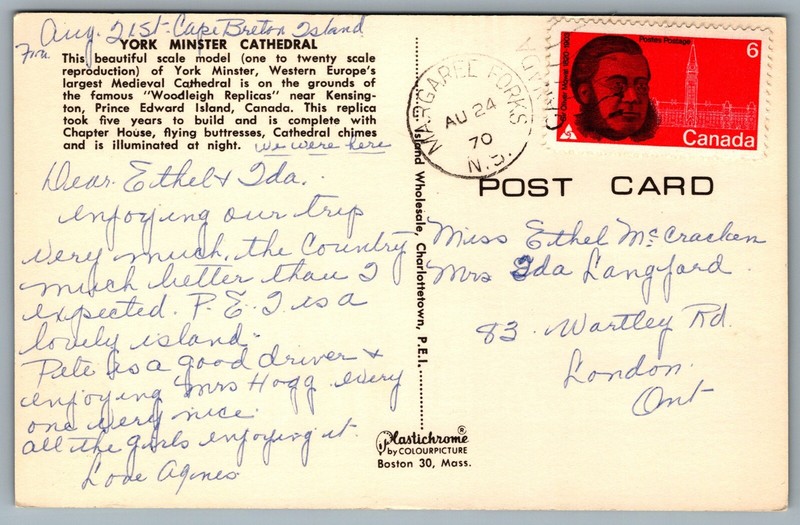 Aug. 21st - Cape Breton Island
Fri.
YORK MINSTER CATHEDRAL
This beautiful scale model (one to twenty scale
reproduction) of York Minster, Western Europe's
largest Medieval Cathedral is on the grounds of
the famous "Woodleigh Replicas" near Kensing-
ton, Prince Edward Island, Canada. This replica
took five years to build and is complete with
Chapter House, flying buttresses, Cathedral chimes
and is illuminated at night. We were here
Dear Ethel & Ida.
enjoying our trip
very much, the Country
much better than I
expected. P.E.I is a
lovely island.
Pete is a good driver &
enjoying Mrs Hogg every
one very nice.
all the girls enjoying it.
Love Agnes
Island Wholesale, Charlottetown, P.E.I.
Plastichrome®
by COLOURPICTURE
Boston 30, Mass.
MARGAREE FORKS
AU 24
70
N.S.
CANADA
Postes Postage
6
Sir Oliver Mowat 1820-1903
Canada
POST CARD
Miss Ethel McCracken
Mrs Ida Langford
83. Wartley Rd.
London.
Ont